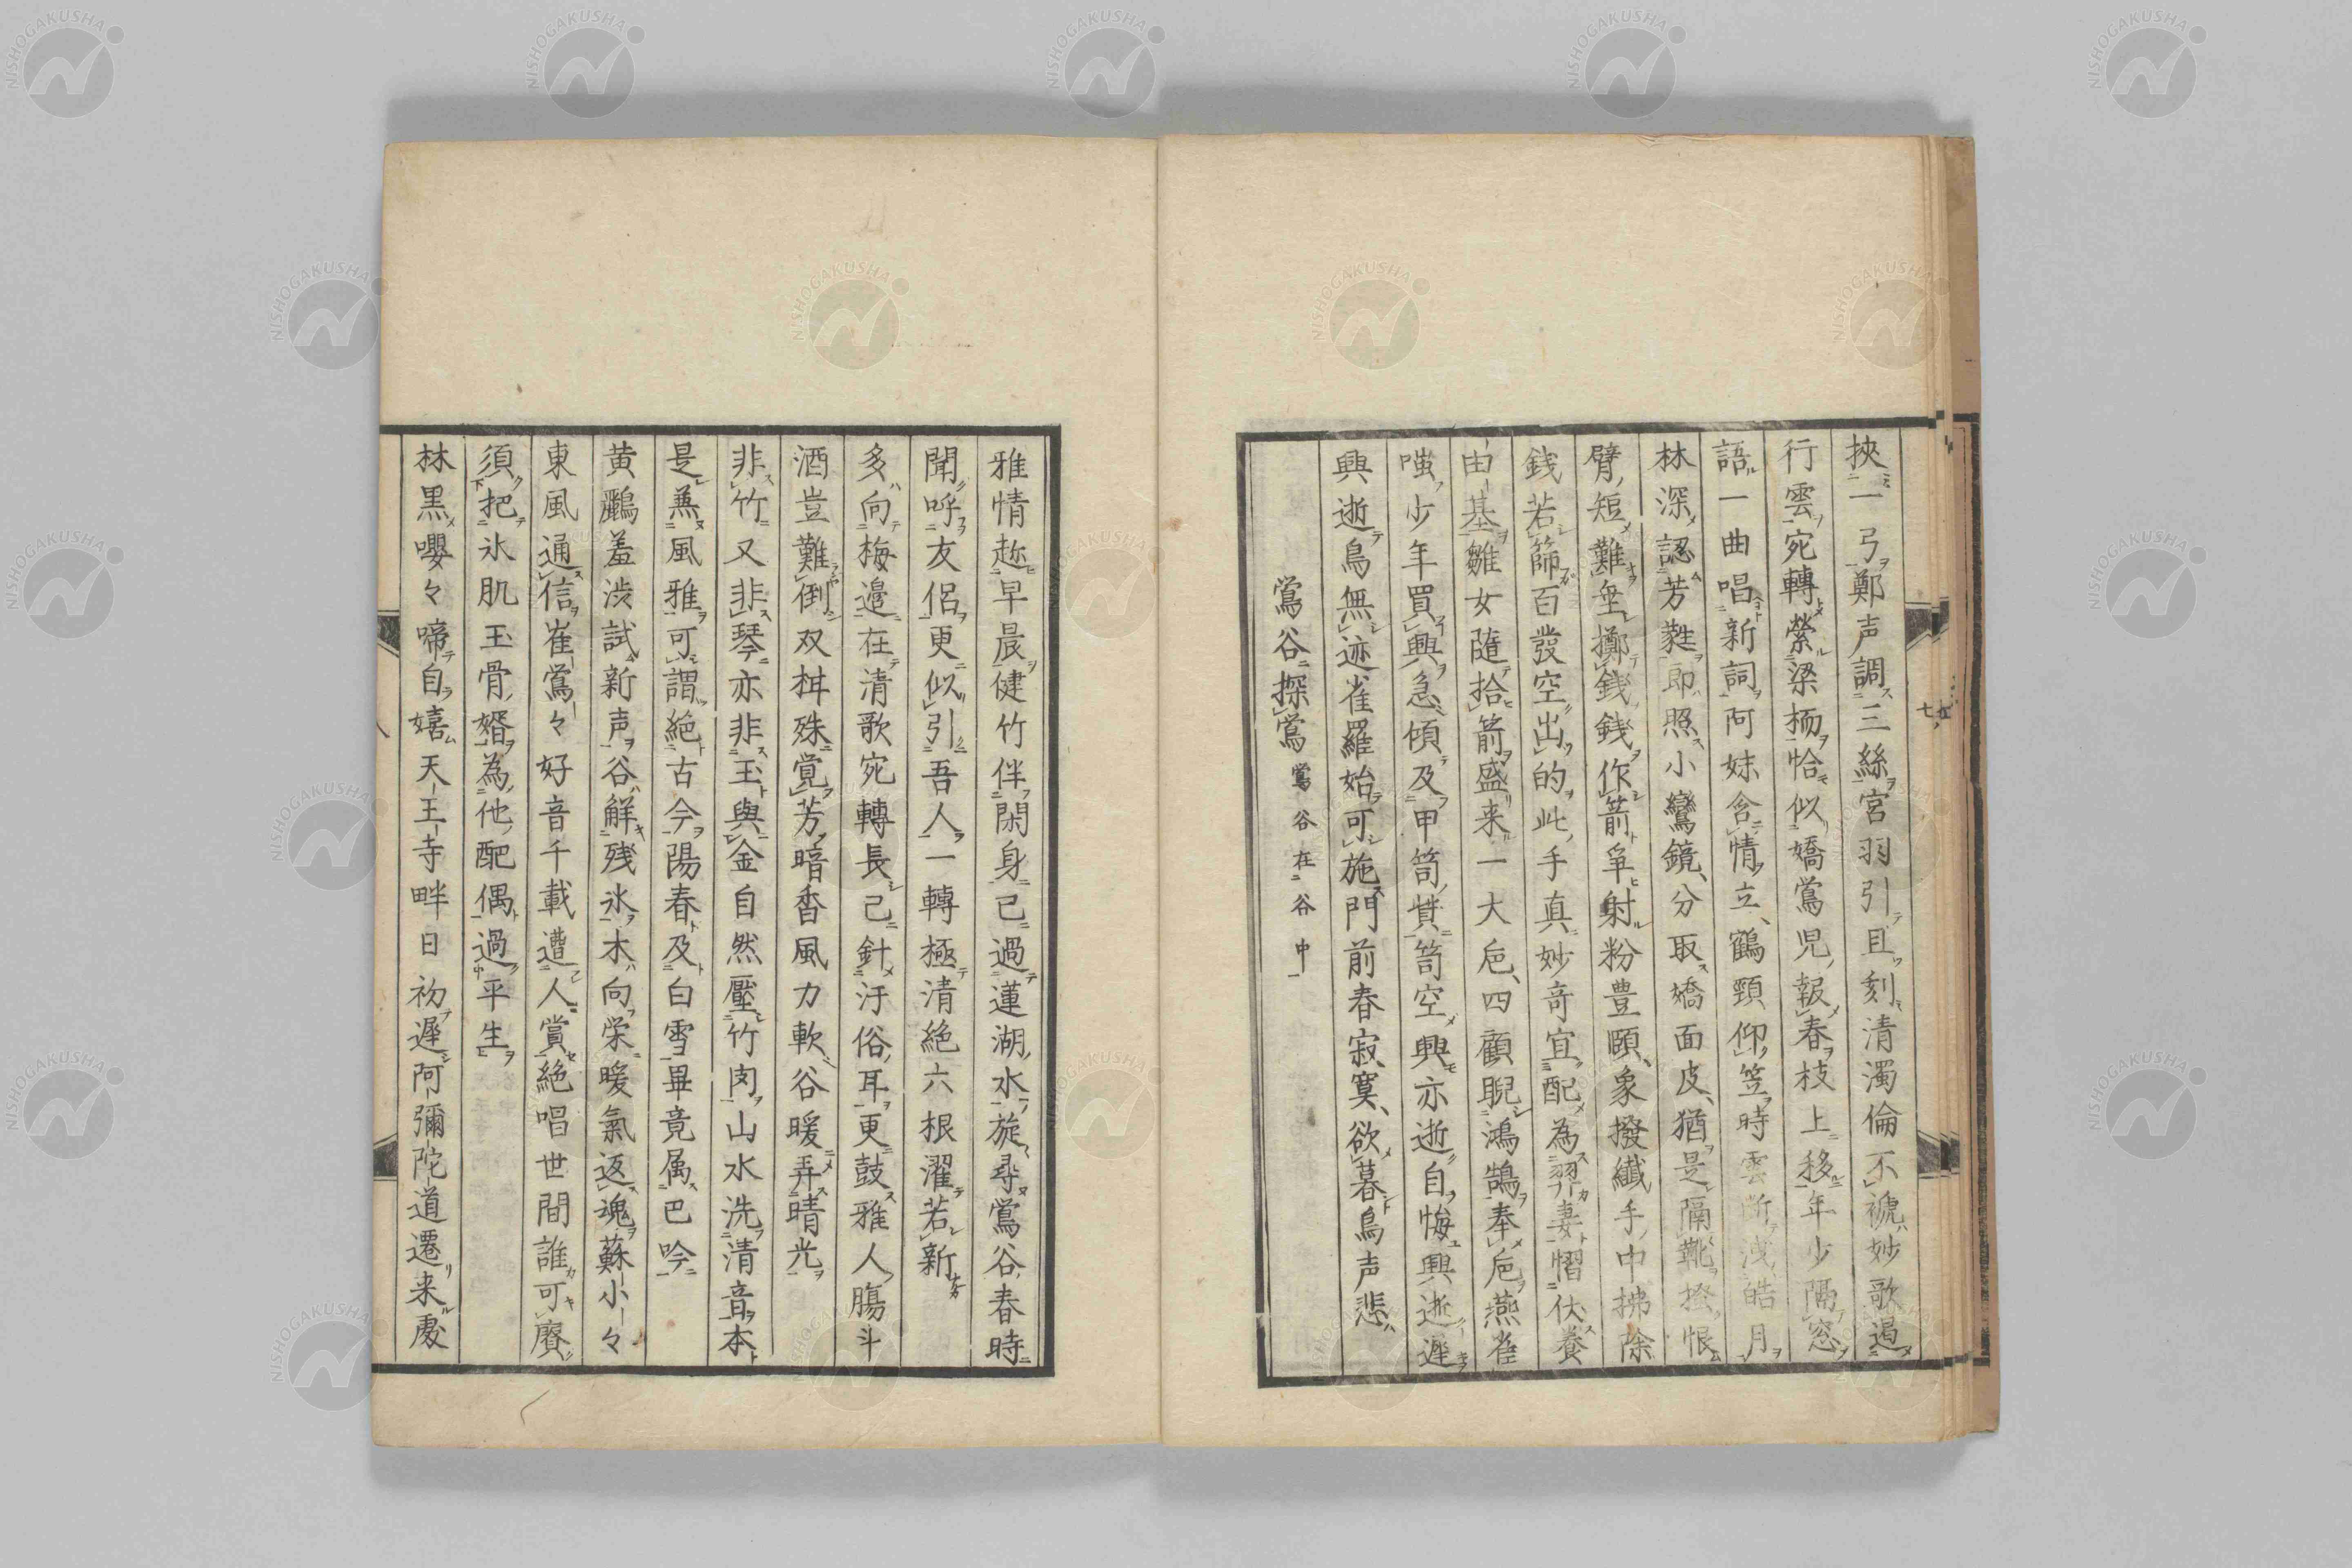 挾一弓鄭声調三絲宮羽引且刻清濁倫不褫妙歌遏
行雲宛轉縈梁栭恰似嬌鴬児報春枝上移年少隔窓
語一曲唱新詞阿妹含情立鶴頸仰笠時雲断洩皓月
林深認芳蕤即照小鸞鏡分取嬌面皮猶是隔靴搔恨
臂短難埀擲錢錢作箭爭射粉豊頤象撥纖手中拂除
錢若篩百發空出的此手真妙竒宜配為羿妻慴伏養
由基雛女隨拾箭盛来一大巵四顧睨鴻鵠奉巵燕雀
嗤少年買興急傾及甲笥貲笥空興亦逝自悔興逝遅
興逝鳥無迹雀羅始可施門前春寂寞欲暮鳥声悲
鴬谷探鴬 鴬谷在谷中
雅情趂早晨健竹伴閑身已過蓮湖水旋尋鴬谷春時
聞呼友侶更似引吾人一轉極清絶六根濯若新
多向梅邉在清歌宛轉長己針汙俗耳更鼓雅人膓斗
酒豈難倒双柑殊覚芳暗香風力軟谷暖弄晴光
非竹又非琴亦非玉與金自然壓竹肉山水洗清音本
是兼風雅可謂絶古今陽春及白雪畢竟属巴吟
黄鸝羞渋試新声谷觧残氷木向栄暖氣返魂蘇小々
東風通信崔鴬々好音千載遭人賞絶唱世間誰可賡
須把氷肌玉骨婿為他配偶過平生
林黒嚶々啼自嬉天王寺畔日初遅阿彌陀道遷来處
七
NISHOGAKUSHA